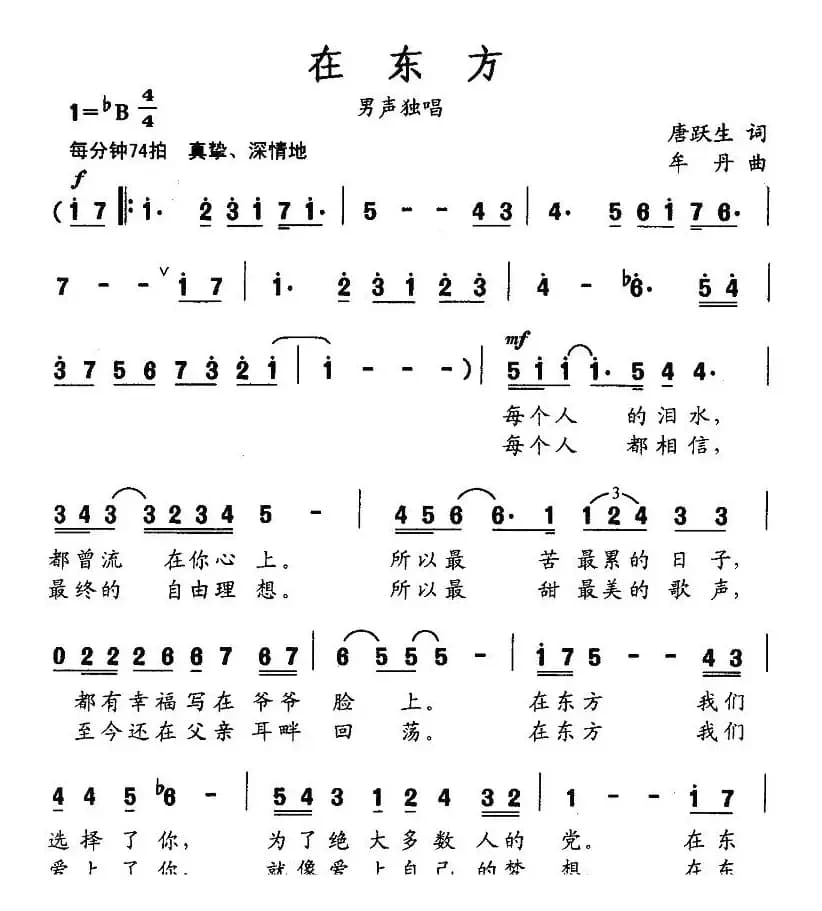 在 东 方
男声独唱
1=♭B 4/4
唐跃生 词
每分钟74拍 真挚、深情地
牟 丹 曲
f
( i̇ 7 ‖: i̇· 2̇ 3̇ i̇ 7 i̇· | 5 - - 4 3 | 4· 5 6 i̇ 7 6· |
7 - - ∨ i̇ 7 | i̇· 2̇ 3̇ i̇ 2̇ 3̇ | 4̇ - ♭6̇· 5̇ 4̇ |
mf
3̇ 7 5 6 7 3̇ 2̇ i̇ | i̇ - - - ) | 5 i̇ i̇ i̇· 5 4 4· |
每个人 的泪水,
每个人 都相信,
3 4 3 3 2 3 4 5 - | 4 5 6 6· 1 1 2 4 3 3 |
3
都曾流 在你心上。 所以最 苦最累的日子,
最终的 自由理想。 所以最 甜最美的歌声,
0 2 2 2 6 6 7 6 7 | 6 5 5 5 - | i̇ 7 5 - - 4 3 |
都有幸福写在爷爷脸 上。 在东方 我们
至今还在父亲耳畔回 荡。 在东方 我们
4 4 5 ♭6 - | 5 4 3 1 2 4 3 2 | 1 - - i̇ 7 |
选择了你, 为了绝大多数人的 党。 在东
爱上了你, 就像爱上自己的梦 想. 在东